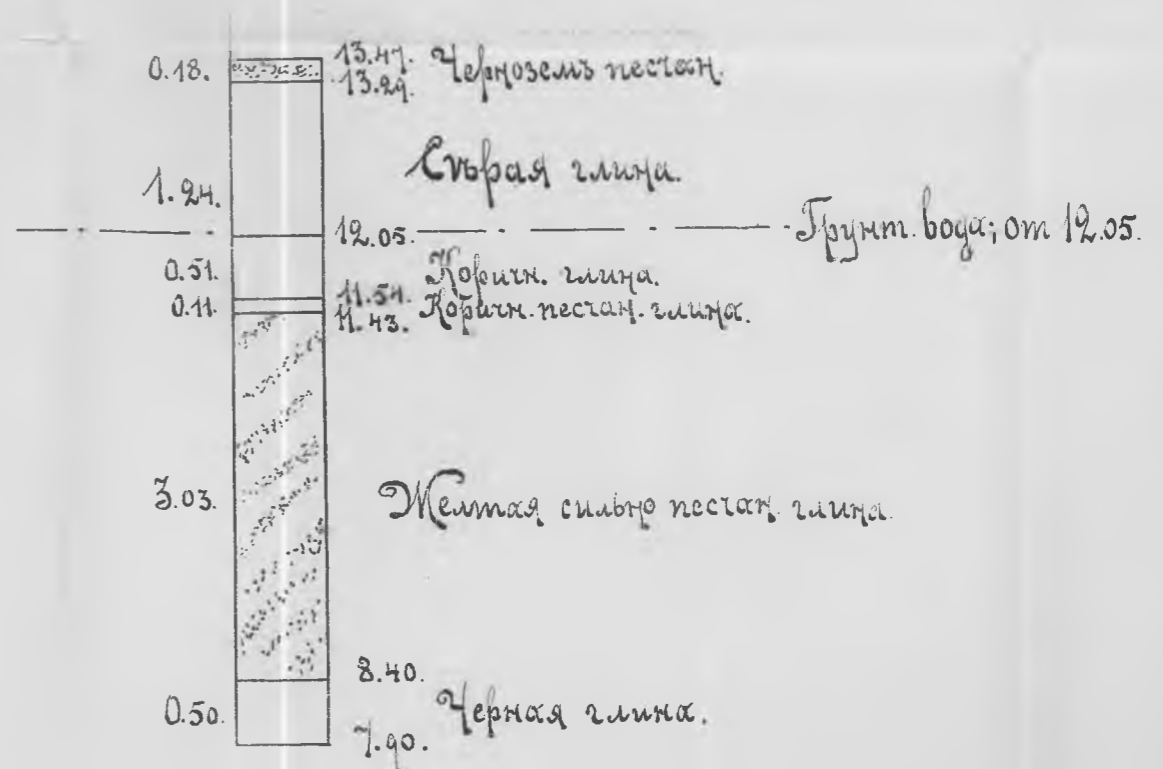 0.18. 13.47. Черноземъ песчан.
13.29.
Сѣрая глина.
1.24.
12.05. Грунт. вода; от 12.05.
0.51. Коричн. глина.
11.54.
0.11. 11.43. Коричн. песчан. глина.
3.03. Желтая сильно песчан. глина.
8.40.
0.50. Черная глина.
7.90.